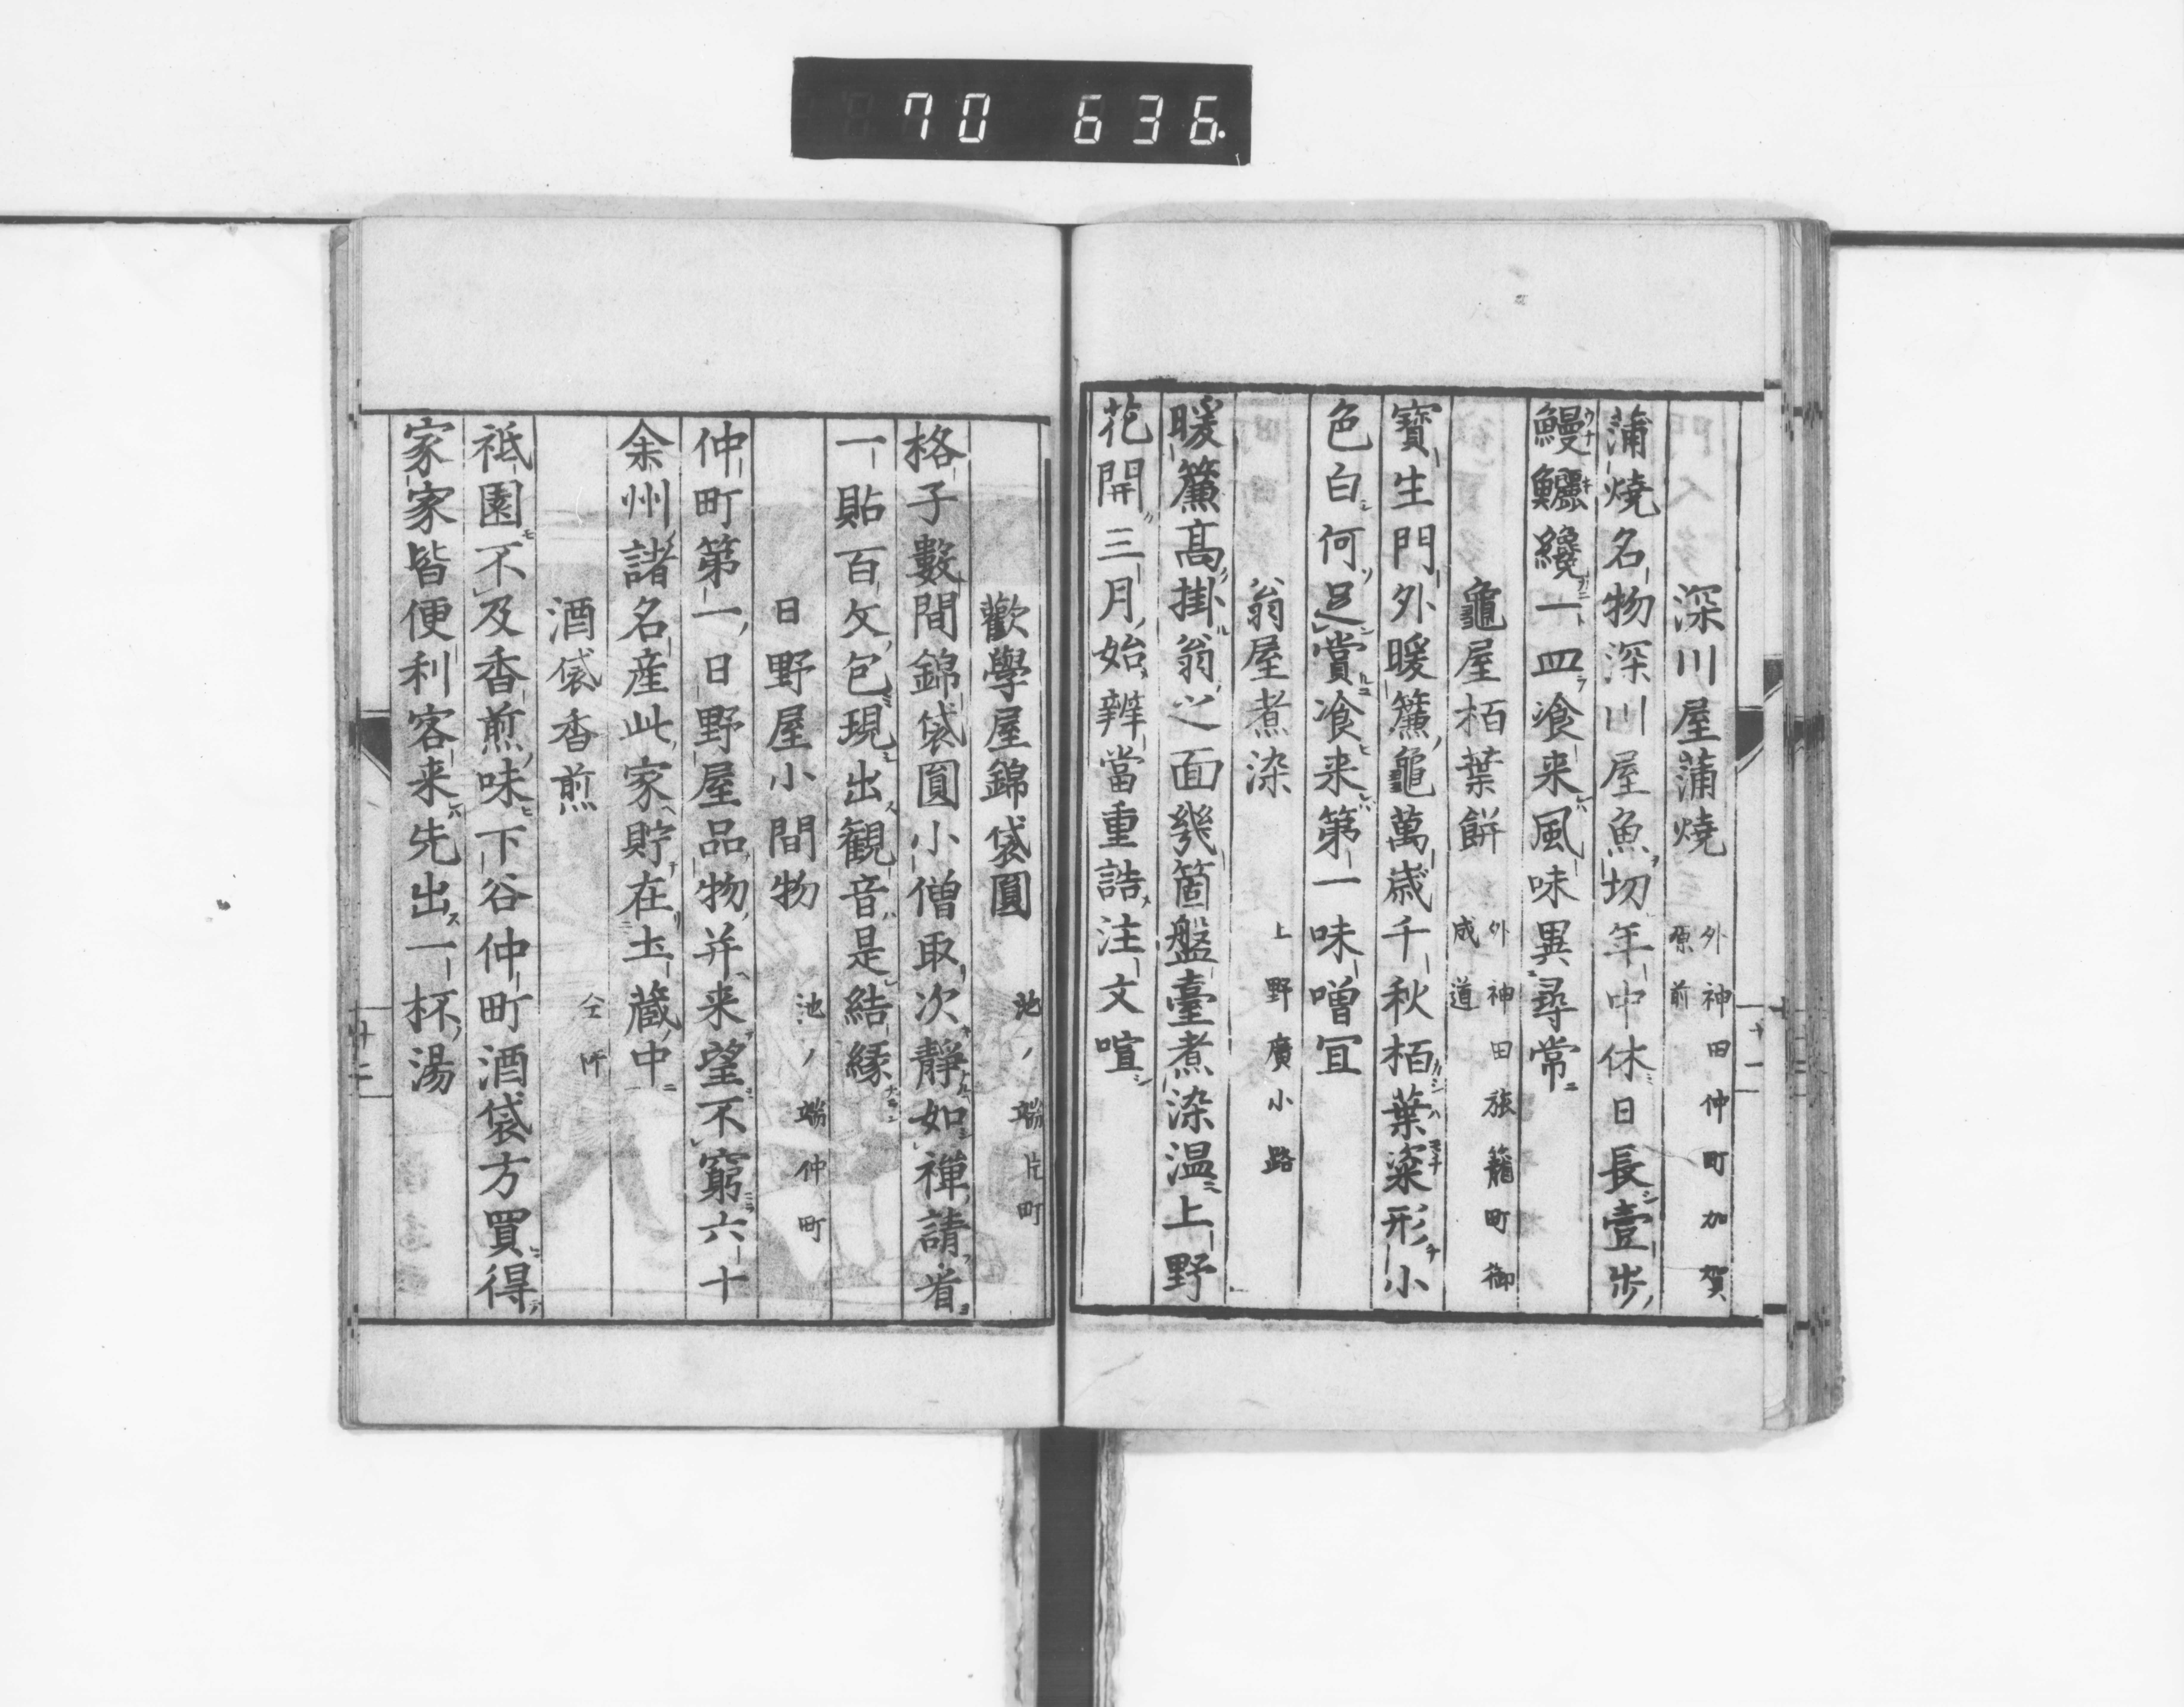 70 636.
深川屋蒲燒 外神田仲町加賀
原前
蒲燒名物深川屋魚切年中休日長壹步
鰻鱺纔一皿飡来風味異尋常
龜屋栢葉餅 外神田旅籠町御
成道
寶生門外暖簾龜萬歳千秋栢葉粢形小
色白何足賞飡来第一味噌冝
翁屋煮染 上野廣小路
暖簾髙掛翁之面幾箇盤臺煮染温上野
花開三月始辨當重詰注文喧
十一
歡學屋錦袋圓 池ノ端片町
格子數間錦袋圓小僧取次靜如禅請看
一貼百文包現出観音是結縁
日野屋小間物 池ノ端仲町
仲町第一日野屋品物并来望不窮六十
余州諸名産此家貯在土藏中
酒袋香煎 仝所
祗園不及香煎味下谷仲町酒袋方買得
家家皆便利客来先出一杯湯
十二